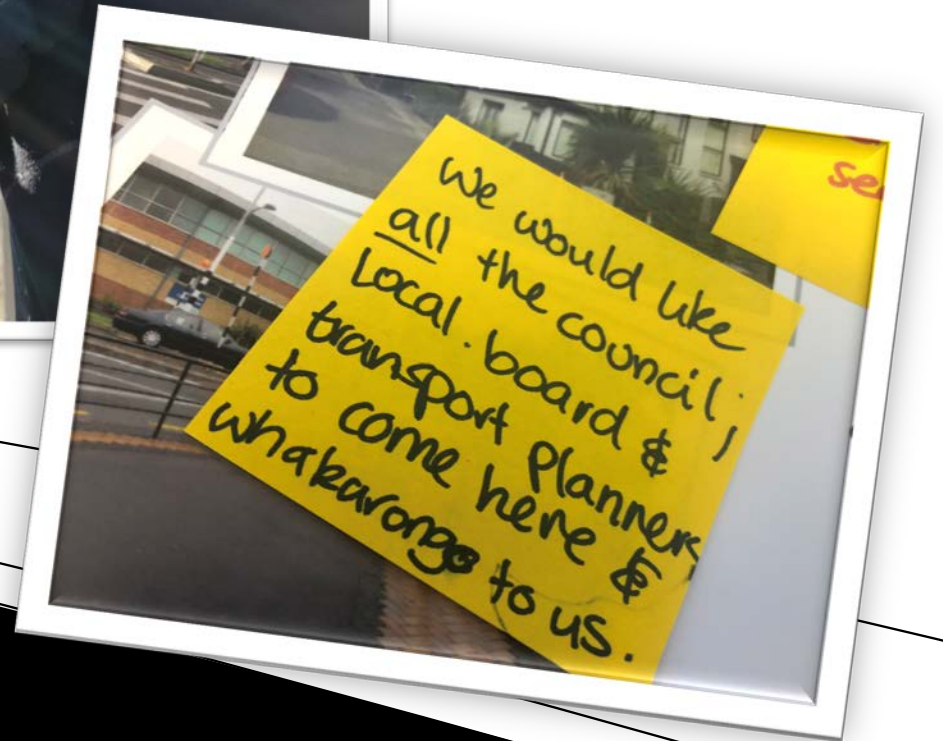 We would like
all the council;
Local. board &
transport Planners
to come here &
whakarongo to us.
se